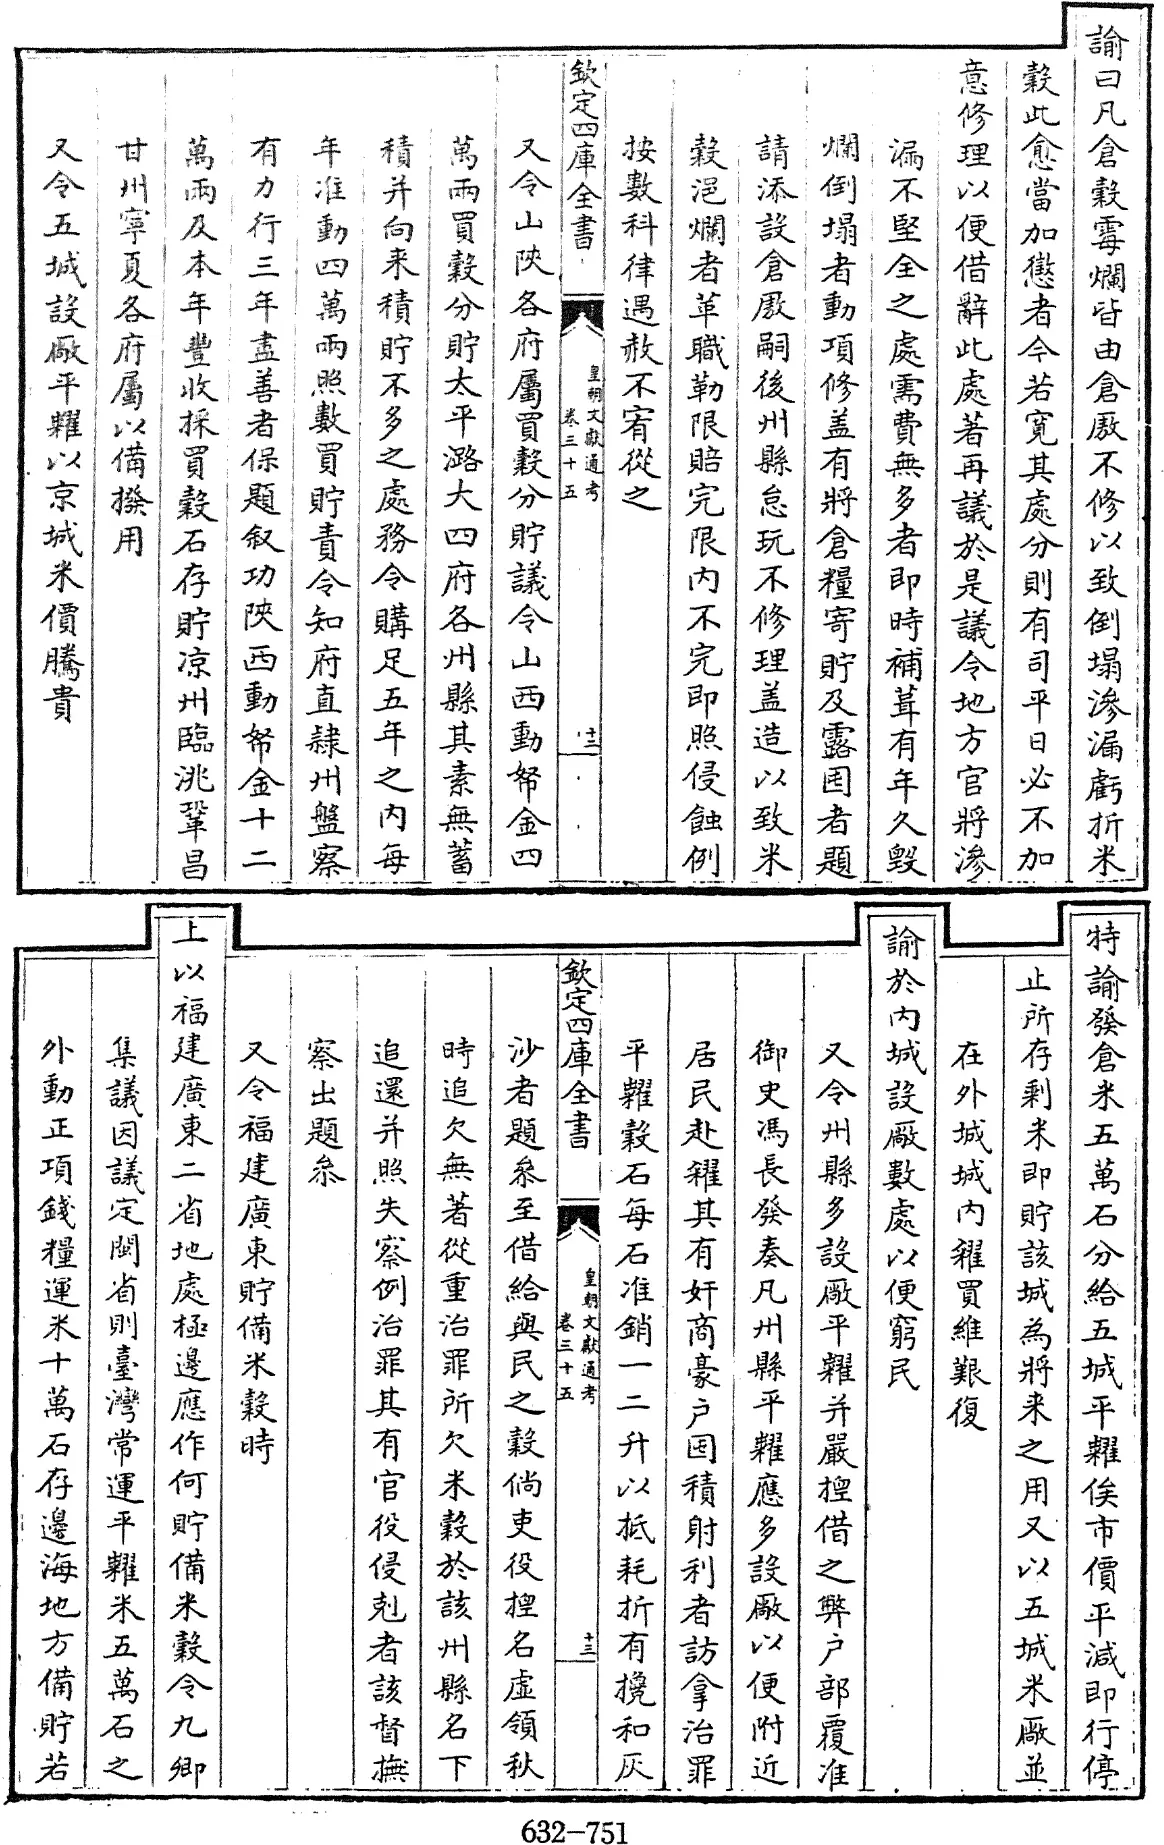 諭曰凡倉穀霉爛皆由倉厫不修以致倒塌滲漏虧折米
穀此愈當加懲者今若寛其處分則有司平日必不加
意修理以便借辭此處著再議於是議令地方官將滲
漏不堅全之處需費無多者即時補葺有年久毀
爛倒塌者動項修盖有將倉糧寄貯及露囤者題
請添設倉厫嗣後州縣怠玩不修理盖造以致米
穀浥爛者革職勒限賠完限内不完即照侵蝕例
按數科律遇赦不宥從之
欽定四庫全書
皇朝文獻通考
卷三十五
十二
又令山陜各府屬買穀分貯議令山西動帑金四
萬兩買穀分貯太平潞大四府各州縣其素無蓄
積并向来積貯不多之處務令購足五年之内每
年准動四萬兩照數買貯責令知府直隸州盤察
有力行三年盡善者保題叙功陜西動帑金十二
萬兩及本年豐收採買穀石存貯凉州臨洮鞏昌
甘州寧夏各府屬以備撥用
又令五城設廠平糶以京城米價騰貴
特諭發倉米五萬石分給五城平糶俟市價平減即行停
止所存剩米即貯該城為將来之用又以五城米廠並
在外城城内糴買維艱復
諭於内城設廠數處以便窮民
又令州縣多設廠平糶并嚴揑借之弊户部覆准
御史馮長發奏凡州縣平糶應多設廠以便附近
居民赴糴其有奸商豪户囤積射利者訪拿治罪
平糶穀石每石准銷一二升以抵耗折有攙和灰
欽定四庫全書
皇朝文獻通考
卷三十五
十三
沙者題叅至借給與民之穀倘吏役揑名虛領秋
時追欠無著從重治罪所欠米穀於該州縣名下
追還并照失察例治罪其有官役侵剋者該督撫
察出題叅
又令福建廣東貯備米穀時
上以福建廣東二省地處極邊應作何貯備米穀令九卿
集議因議定閩省則臺灣常運平糶米五萬石之
外動正項錢糧運米十萬石存邊海地方備貯若
632–751